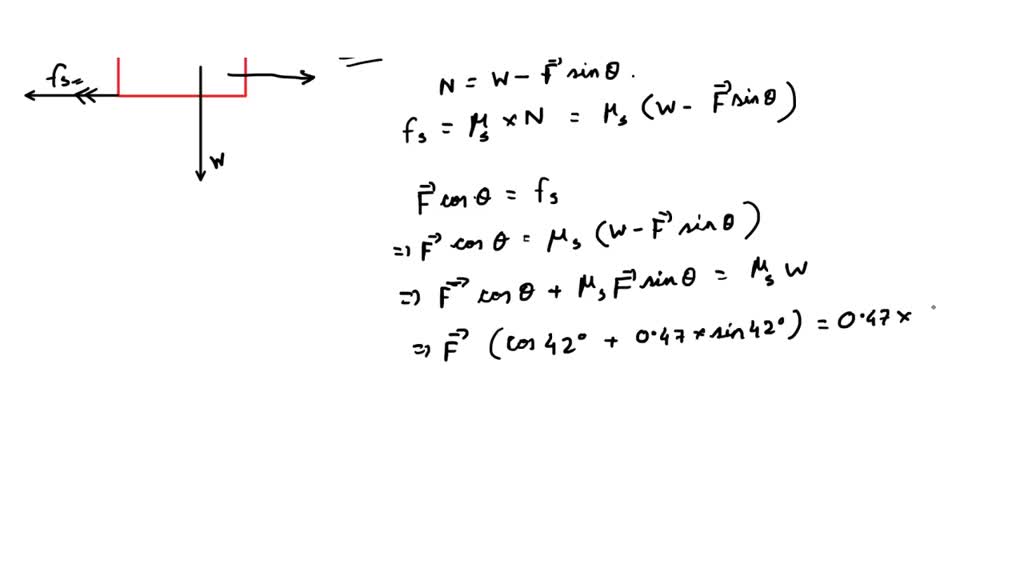 fs
W
N = W - F⃗ sinθ .
fs = μs × N = μs (W - F⃗ sinθ)
F⃗ cosθ = fs
⇒ F⃗ cosθ = μs (W - F⃗ sinθ)
⇒ F⃗ cosθ + μs F⃗ sinθ = μs W
⇒ F⃗ (cos 42° + 0.47 × sin 42°) = 0.47 ×